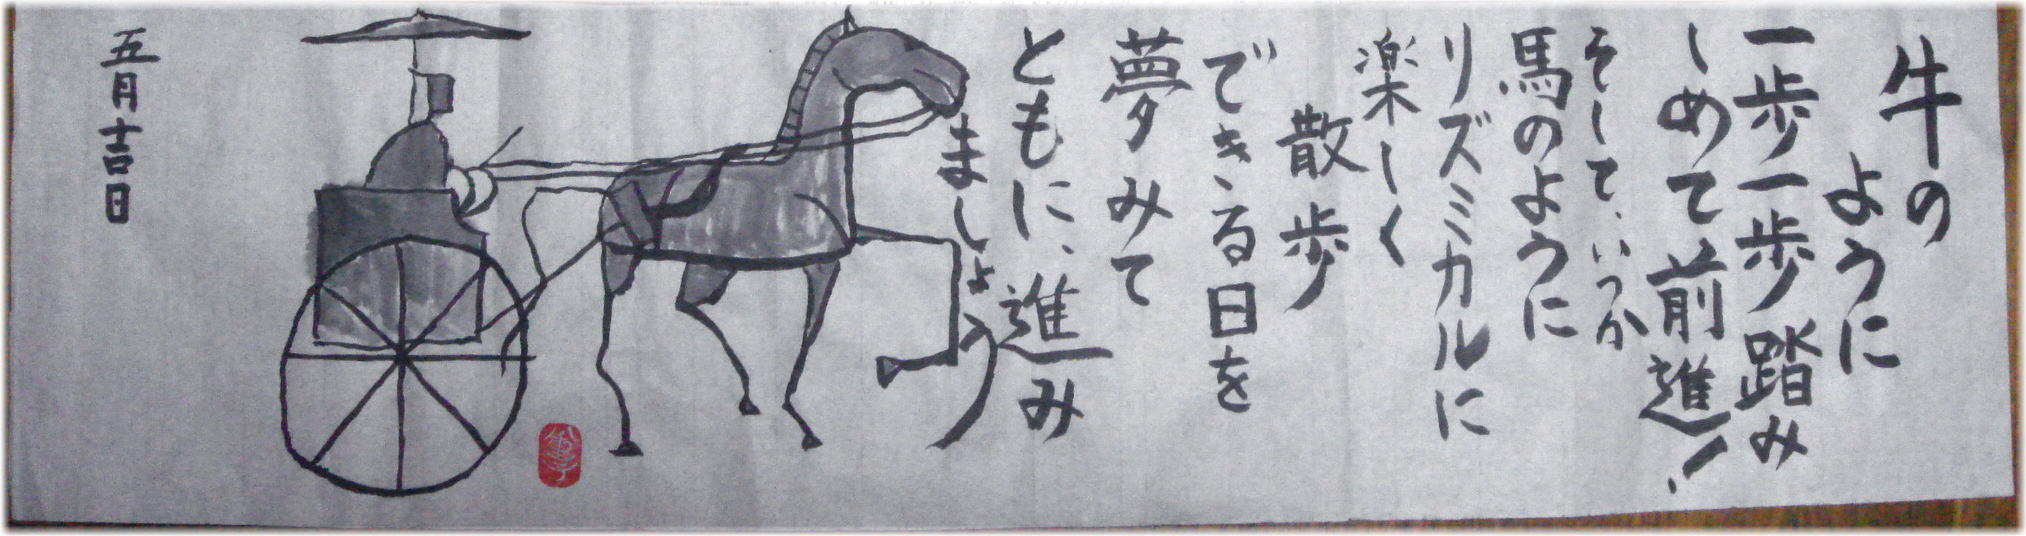 牛の
ように
一歩一歩踏み
しめて前進!
そして、いつか
馬のように
リズミカルに
楽しく
散歩
できる日を
夢みて
ともに、進み
ましょう
五月吉日